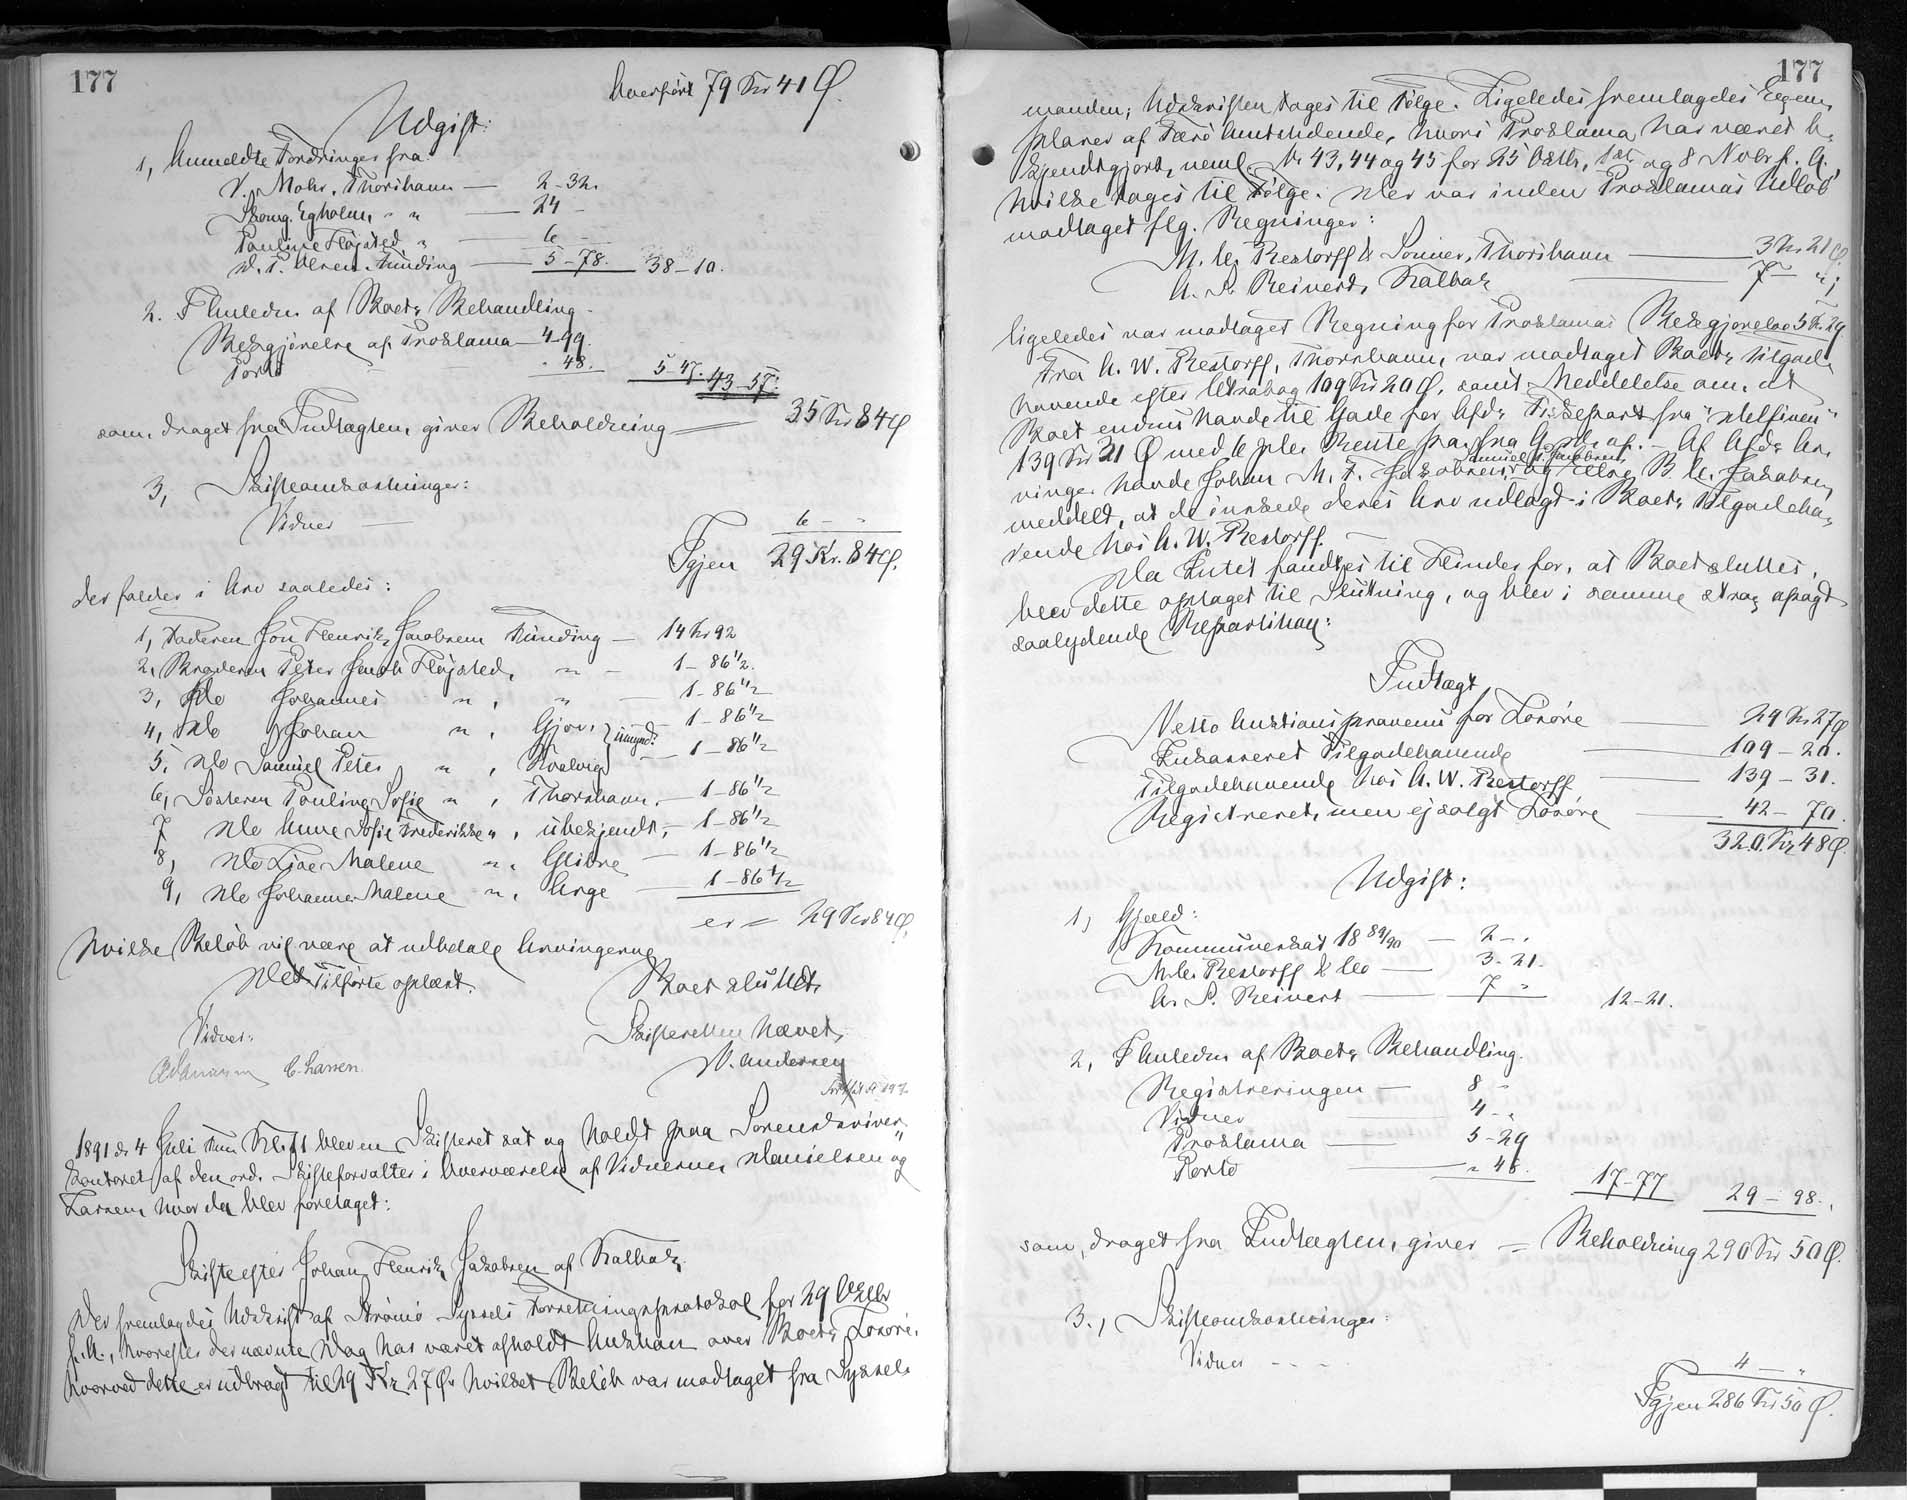 177
Overført 79 Kr 41 Ø.
Udgift:
1, Anmeldte Fordringer fra:
V. Mohr, Thorshavn — 2-32.
Skomg. Egholm, " " — 24 -
Pauline Højsted, " — 6 -
D. P. Olsen. Funding — 5-78. 38-10.
2. I Anledn af Boets Behandling.
Bekgjørelse af Proklama — 4-99.
Porto - 48. 5-47. 43-57.
som, draget fra Indtægten, giver Beholdning — 35 Kr 84 Ø
3, Skifteomkostninger:
Vidner 6 - "
Igjen 29 Kr. 84 Ø.
der falder i Arv saaledes:
1, Faderen Jon Henrik Jacobsen Funding — 14 Kr 92
2, Broderen Peter Jacob Højsted, " - 1-86 1/2.
3, Do Johannes ", " 1-86 1/2
4, Do Johan ", Gjov, 1-86 1/2
5, Do Samuel Peter ", Kvalvig 1-86 1/2
6, Søsteren Pauline Sofie ", Thorshavn. — 1-86 1/2
7 Do Anne Sofie Frederikke ", ubekjendt, — 1-86 1/2
8, Do Malene ", Glibre — 1-86 1/2
9, Do Johanne Malene ", Arge — 1-86 1/2
er = 29 Kr 84 Ø.
hvilke Beløb vil være at udbetale Arvingerne
Det Tilførte oplæst. Boet sluttet.
Vidner: Skifteretten hævet.
C. Larsen. V. Andersen
1891 d. 4 Juli Kl. 11 blev en Skifteret sat og holdt paa Sorenskriver-
kontoret af den ord. Skifteforvalter i Overværelse af Vidnerne Danielsen og
Larsen, hvor da blev foretaget:
Skifte efter Johan Henrik Jakobsen af Kalbak
Der fremlagdes Udskrift af Strømø Syssels Forretningsprotokol for 29 Oktbr
f. A., hvorefter der nævnte Dag har været afholdt Auktion over Boets Løsøre,
hvorved dette er udbragt til 29 Kr. 27 Ø. hvilket Beløb var modtaget fra Syssel-
177
manden; Udskriften tages til Følge. Ligeledes fremlagdes Exem-
plarer af Færø Amtstidende, hvori Proklama har været be-
kjendtgjort, neml. Nr 43, 44 og 45 for 25 Oktbr, 1st og 8 Novbr f. A.,
hvilke tages til Følge. Der var inden Proklamas Udløb
modtaget flg. Regninger:
M. C. Restorff & Sønner, Thorshavn — 3 Kr 21 Ø.
A. S. Reinert, Kalbak — 7 - ";
ligeledes var modtaget Regning for Proklamas Bekgjørelse 5 Kr 29
Fra A. W. Restorff, Thorshavn, var modtaget Boets Tilgode-
havende efter Kontrabog 109 Kr 20 Ø. samt Meddelelse om, at
Boet endnu havde til Gode for Afds Fiskepart fra "Delfinen"
139 Kr 31 Ø med 6 pCt. Rente fra — Af Afds Ar-
vinger havde Johan M. F. Jakobsen, Samuel P. Jacobsen og Else B. C. Jakobsen
meddelt, at de ønskede deres Arv udlagt i Boets Tilgodeha-
vende hos A. W. Restorff. —
Da Intet fandtes til Hinder for, at Boet sluttes,
blev dette optaget til Slutning, og blev i samme strax afsagt
saalydende Repartition:
Indtægt
Netto Auktionsprovenu for Løsøre — 29 Kr 27 Ø
Inkasseret Tilgodehavende — 109-20.
Tilgodehavende hos A. W. Restorff — 139-31.
Registreret, men ej solgt Løsøre — 42-70.
320 Kr 48 Ø.
Udgift:
1, Gjæld:
Kommuneskat 18 89/90 — 2 - "
M. C. Restorff & Co — 3-21.
A. S. Reinert — 7 " 12-21.
2, I Anledn af Boets Behandling.
Registreringen — 8 -
Vidner 4 - "
Proklama — 5-29
Porto — " 48. 17-77 29-98.
som, draget fra Indtægten, giver = Beholdning 290 Kr 50 Ø.
3., Skifteomkostninger:
Vidner - - - 4 - "
Igjen 286 Kr 50 Ø.